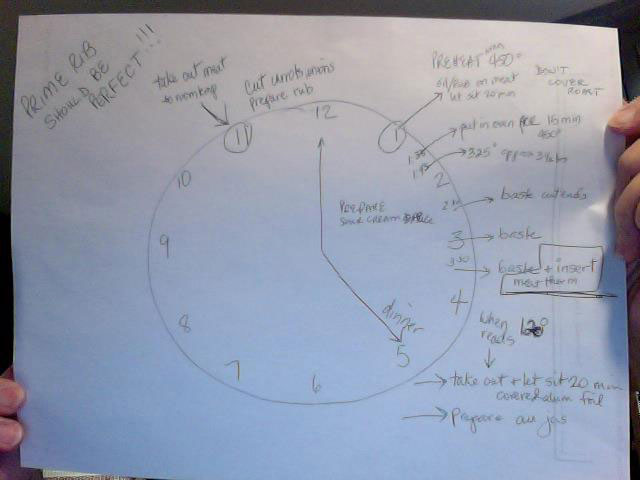 PRIME RIB
SHOULD BE
PERFECT!!!
take out meat
to room temp
cut carrots onions
prepare rub
PREHEAT oven
450°
oil/Rub on meat
let sit 20 min
DON'T
COVER
ROAST
put in oven FOR 15 min
450°
325° approx 3 1/2 hrs
baste cut ends
baste
baste + insert
meat therm
when
reads 120°
take out + let sit 20 min
covered alum foil
prepare au jus
12
1
1:30
1:45
2
2:30
3
3:30
4
dinner
5
6
7
8
9
10
11
PREPARE
SOUR CREAM SAUCE